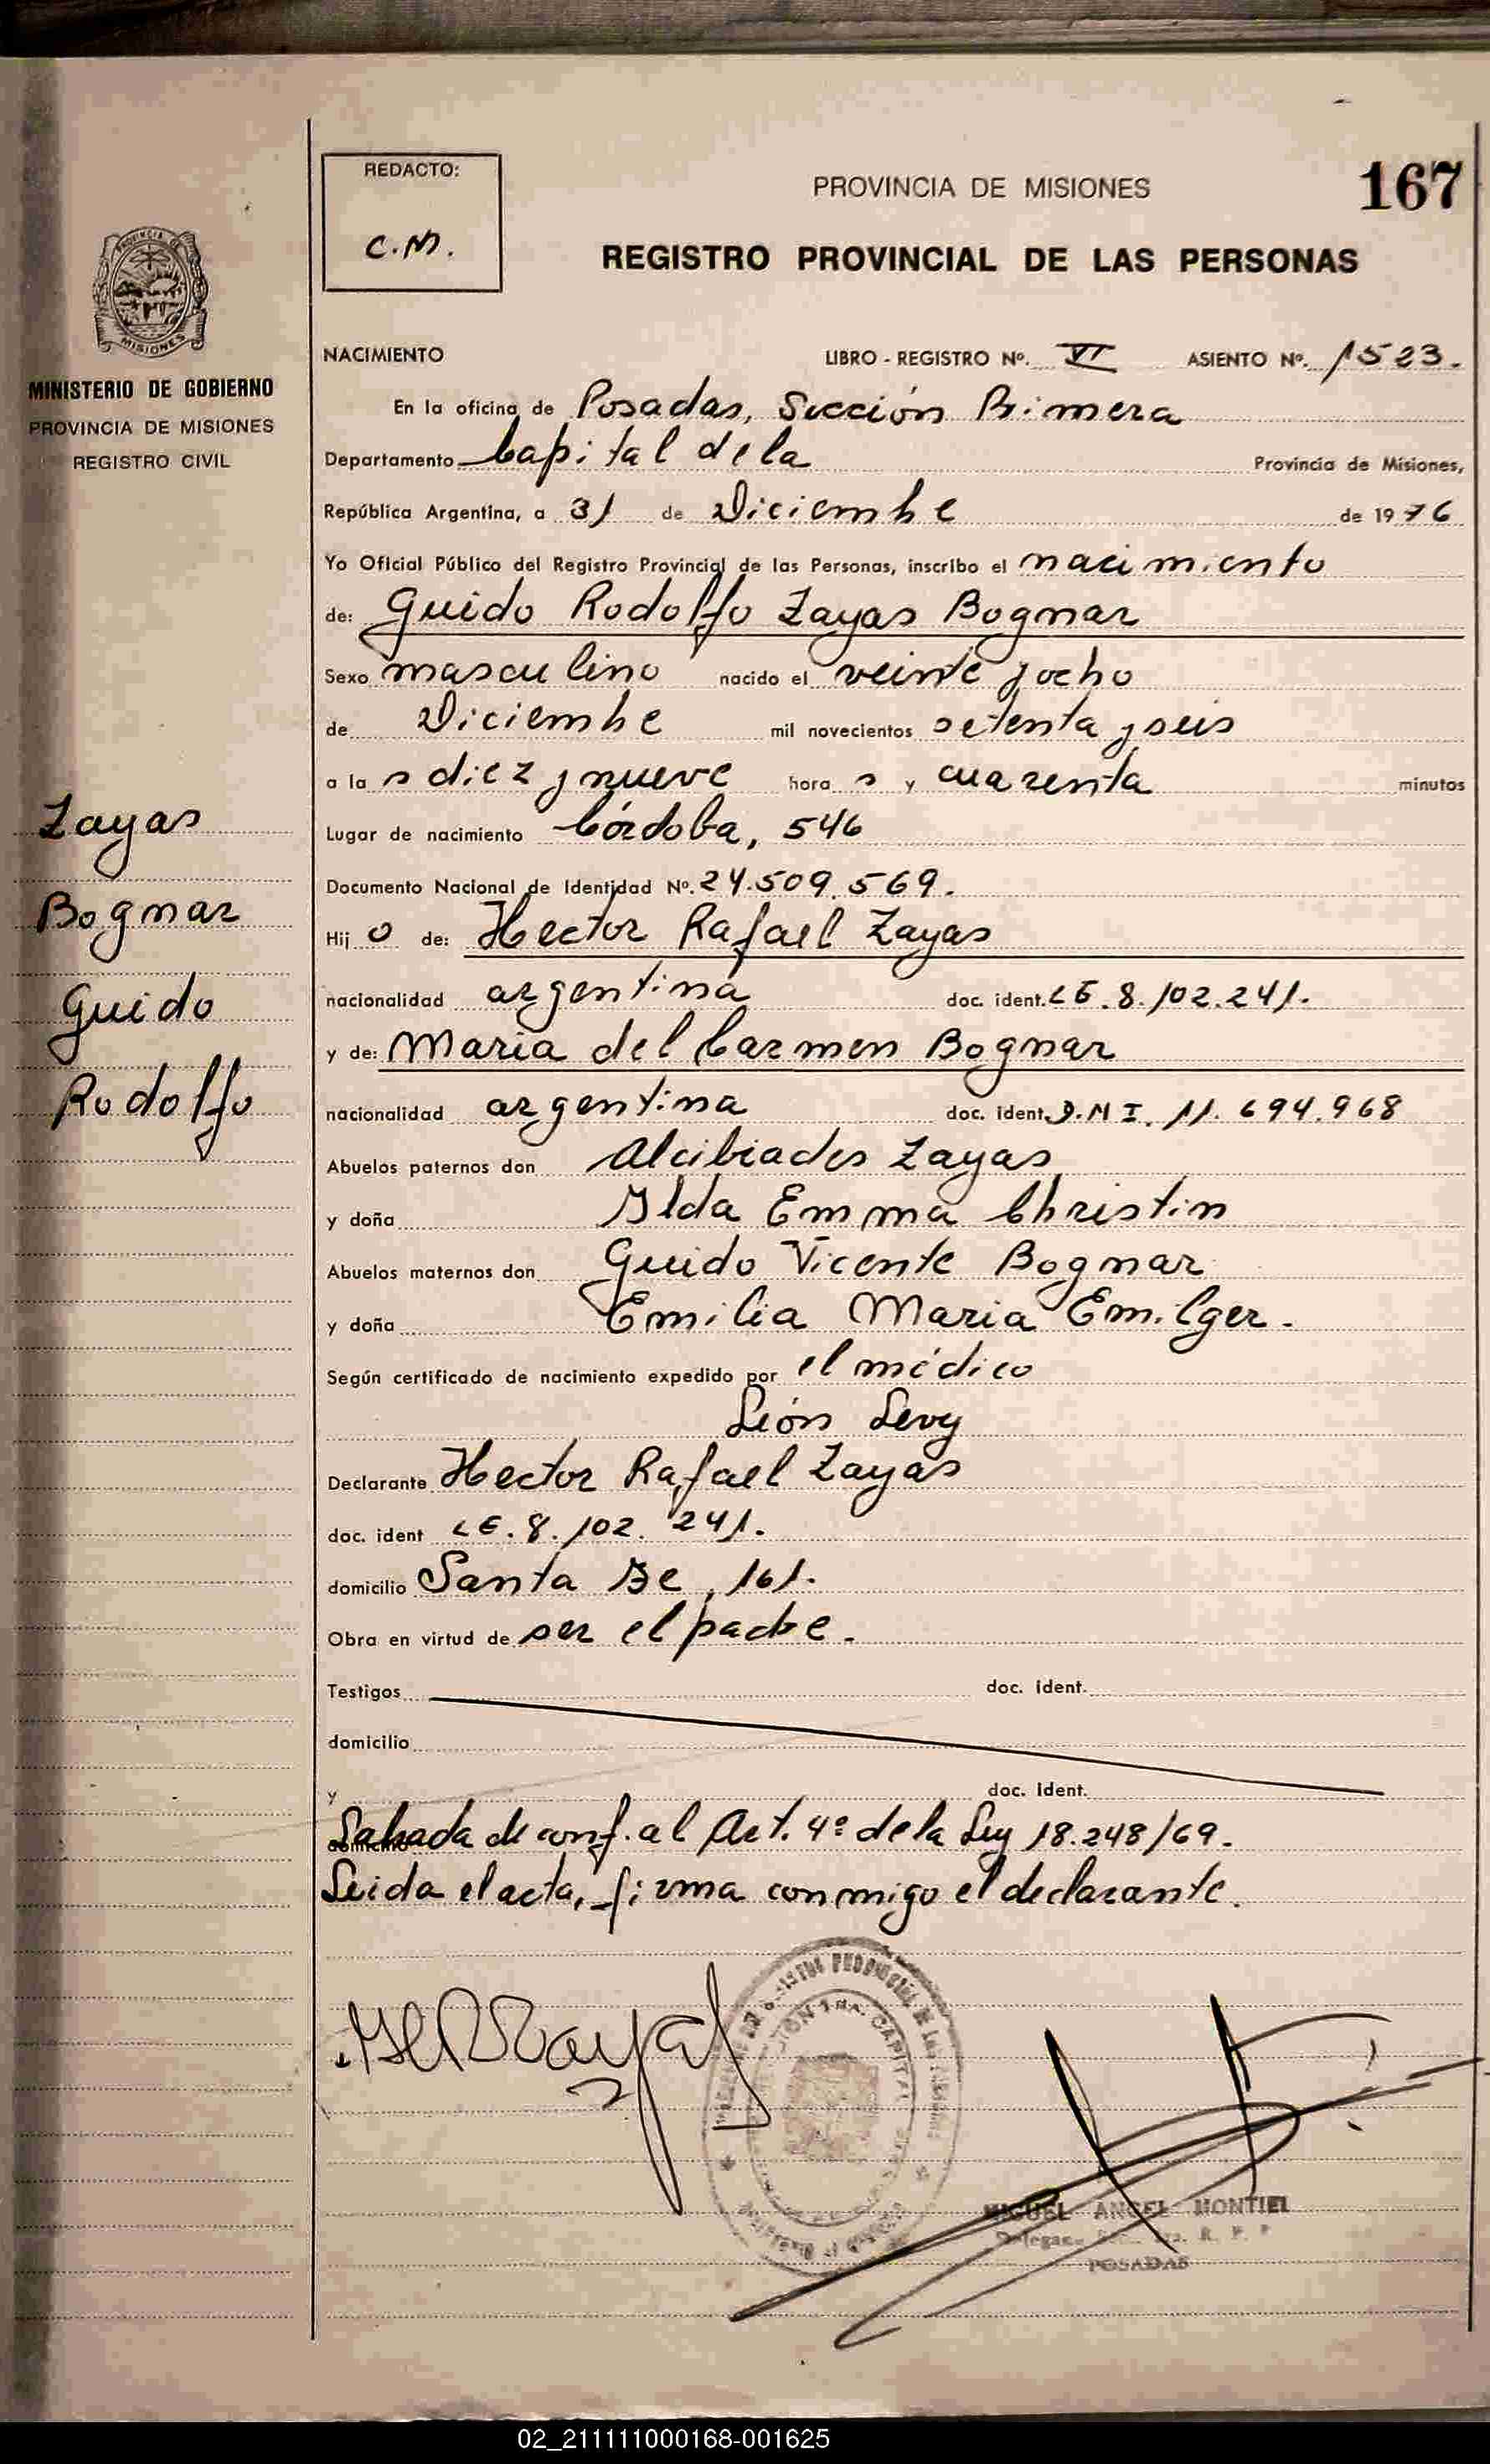 REDACTO:
C.M.
PROVINCIA DE MISIONES
167
REGISTRO PROVINCIAL DE LAS PERSONAS
PROVINCIA DE
MISIONES
MINISTERIO DE GOBIERNO
PROVINCIA DE MISIONES
REGISTRO CIVIL
Zayas
Bogmar
Guido
Rodolfo
NACIMIENTO LIBRO - REGISTRO Nº. VI ASIENTO Nº. 1523.
En la oficina de Posadas, Sección Primera
Departamento Capital de la Provincia de Misiones,
República Argentina, a 31 de Diciembre de 1976
Yo Oficial Público del Registro Provincial de las Personas, inscribo el nacimiento
de: Guido Rodolfo Zayas Bogmar
Sexo masculino nacido el veinte y ocho
de Diciembre mil novecientos setenta y seis
a la s diez y nueve hora s y cuarenta minutos
Lugar de nacimiento Córdoba, 546
Documento Nacional de Identidad Nº. 24.509.569.
Hij o de: Hector Rafael Zayas
nacionalidad argentina doc. ident. LE. 8.102.241.
y de: Maria del Carmen Bogmar
nacionalidad argentina doc. ident. D.N I. 11.694.968
Abuelos paternos don Alcibiades Zayas
y doña Ilda Emma Christin
Abuelos maternos don Guido Vicente Bogmar
y doña Emilia Maria Emilger.
Según certificado de nacimiento expedido por el médico
León Levy
Declarante Hector Rafael Zayas
doc. ident LE. 8.102.241.
domicilio Santa Fe, 161.
Obra en virtud de ser el padre.
Testigos doc. ident.
domicilio
y doc. ident.
de conf. al Art. 4º de la Ley 18.248/69.
Leida el acta, firma conmigo el declarante.
MIGUEL ANGEL MONTIEL
R. P. P
POSADAS
02_211111000168-001625